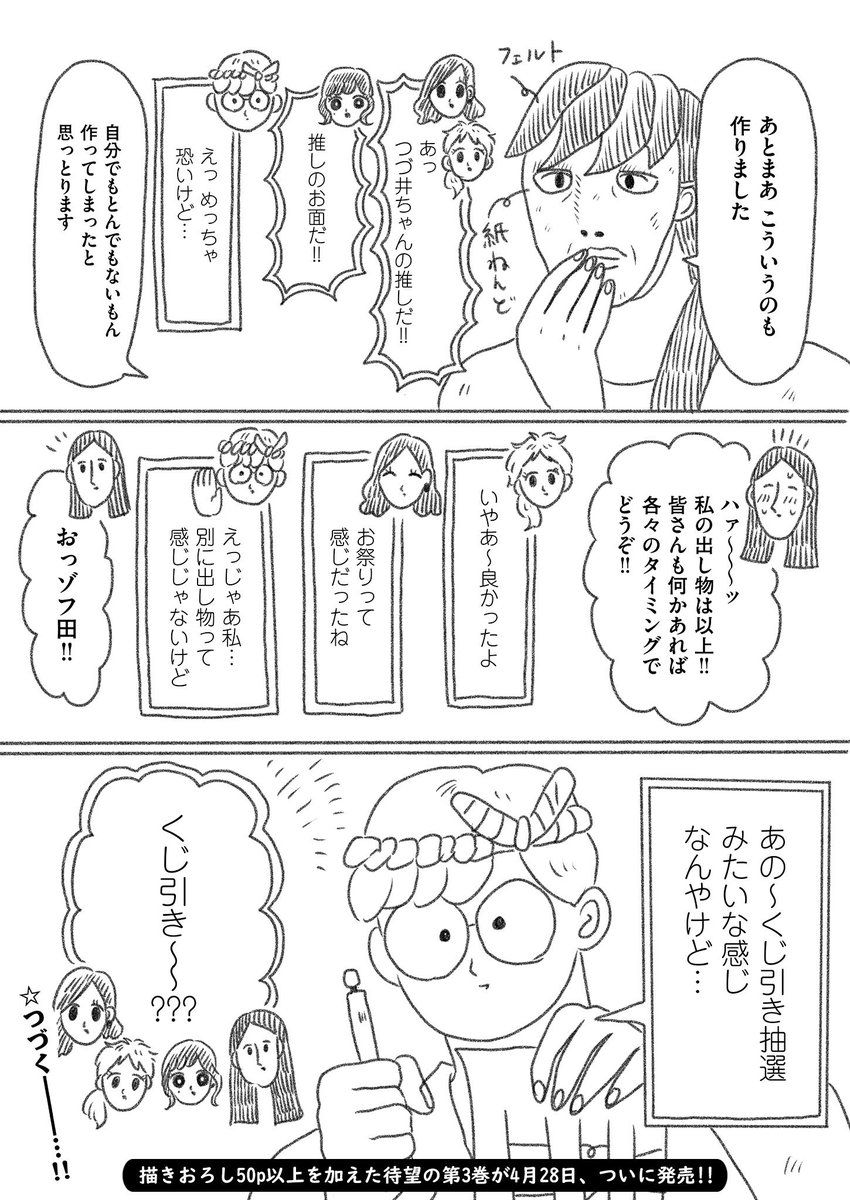 あとまあ こういうのも
作りました
フェルト
紙ねんど
あっ
つづ井ちゃんの推しだ!!
推しのお面だ!!
えっ めっちゃ
恐いけど…
自分でもとんでもないもん
作ってしまったと
思っとります
ハァ〜〜〜ッ
私の出し物は以上!!
皆さんも何かあれば
各々のタイミングで
どうぞ!!
いやあ〜良かったよ
お祭りって
感じだったね
えっじゃあ私…
別に出し物って
感じじゃないけど
おっゾフ田!!
あの〜くじ引き抽選
みたいな感じ
なんやけど…
くじ引き〜〜???
☆つづく――…!!
描きおろし50p以上を加えた待望の第3巻が4月28日、ついに発売!!